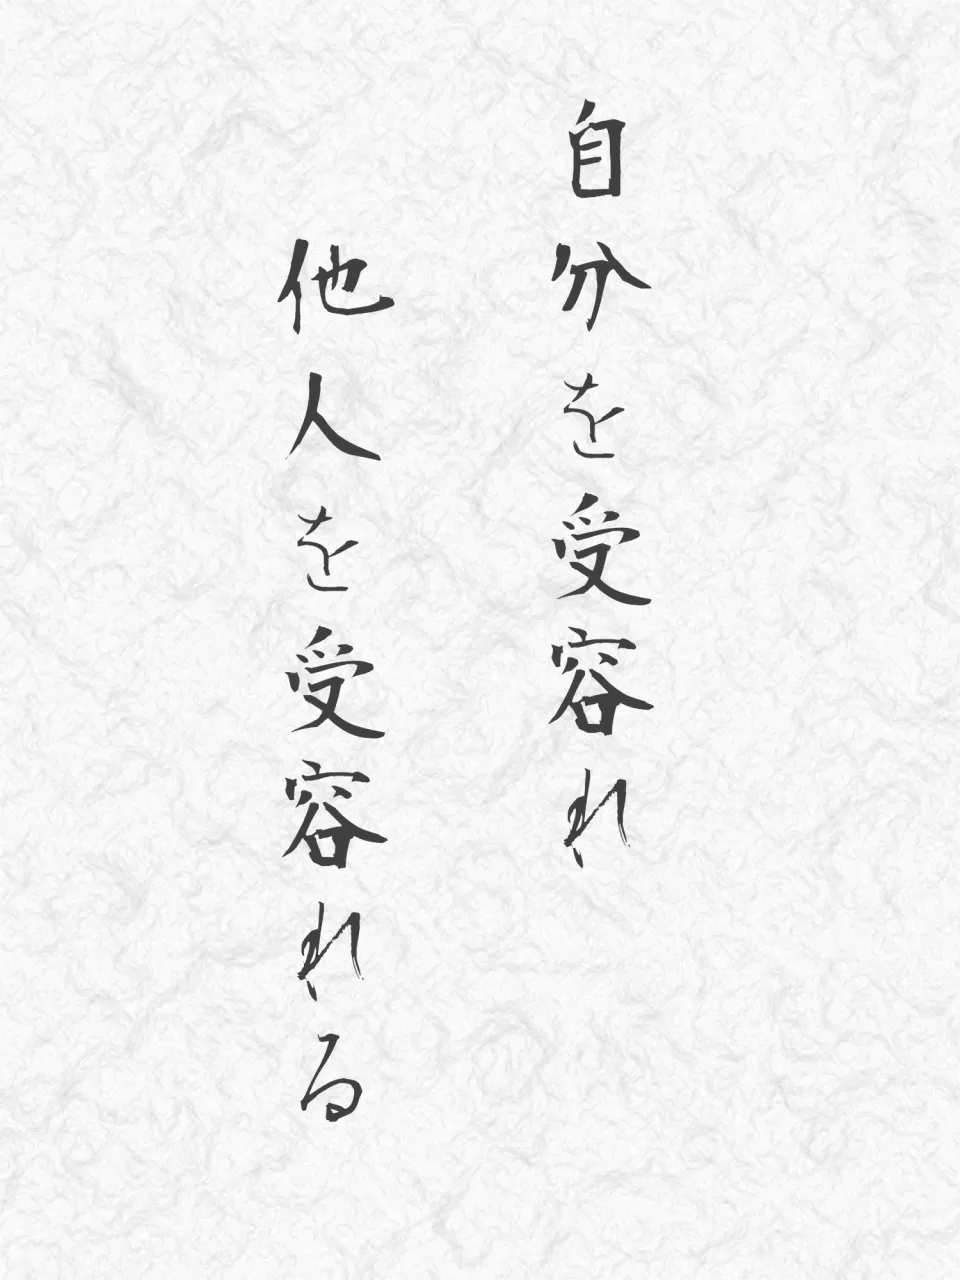 自分を受容れ
他人を受容れる